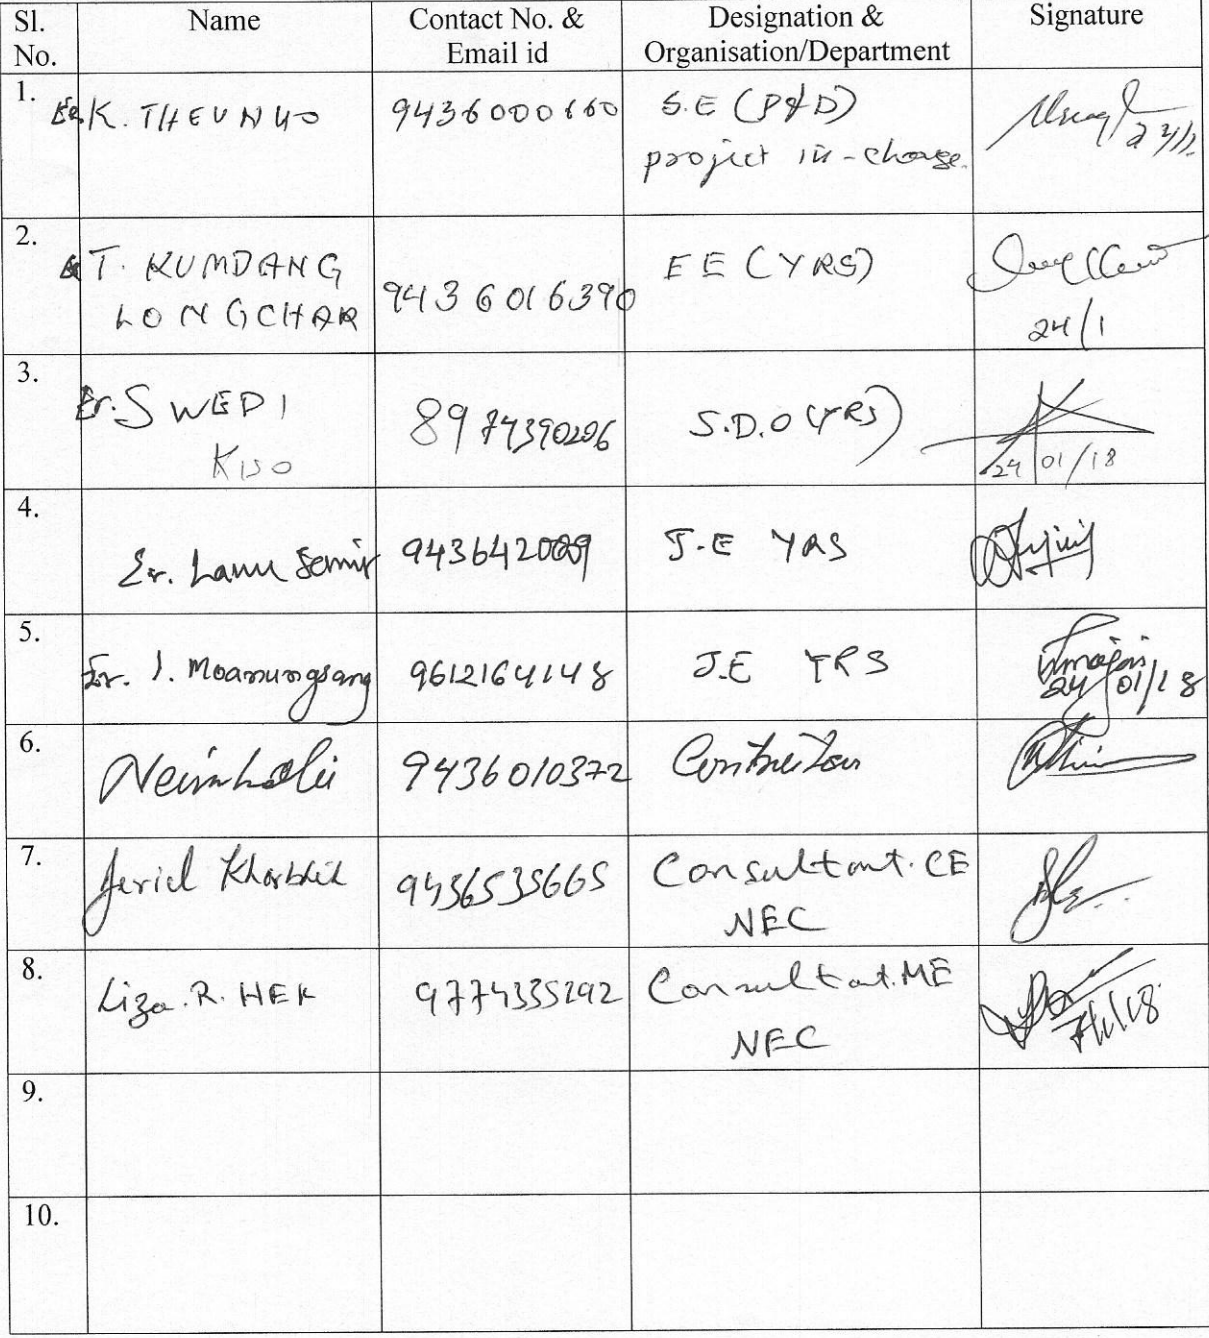 Sl. No. Name Contact No. & Email id Designation & Organisation/Department Signature
1. Er. K. THEUNUO 9436000660 S.E (P&D)
project in-charge.
24/1
2. Er T. KUMDANG
LONGCHAR 9436016390 EE (YRS)
24/1
3. Er. SWEDI
KISO 8974390296 S.D.O (YRS)
24/01/18
4. Er. Lanu 9436420009 J.E YRS
5. Er. I. Moanungsang 9612164148 J.E YRS
24/01/18
6. 9436010372 Contractor
7. Jeriel 9436535665 Consultant. CE
NEC
8. Liza. R. HEK 9774335292 Consultant. ME
NEC
9.
10.